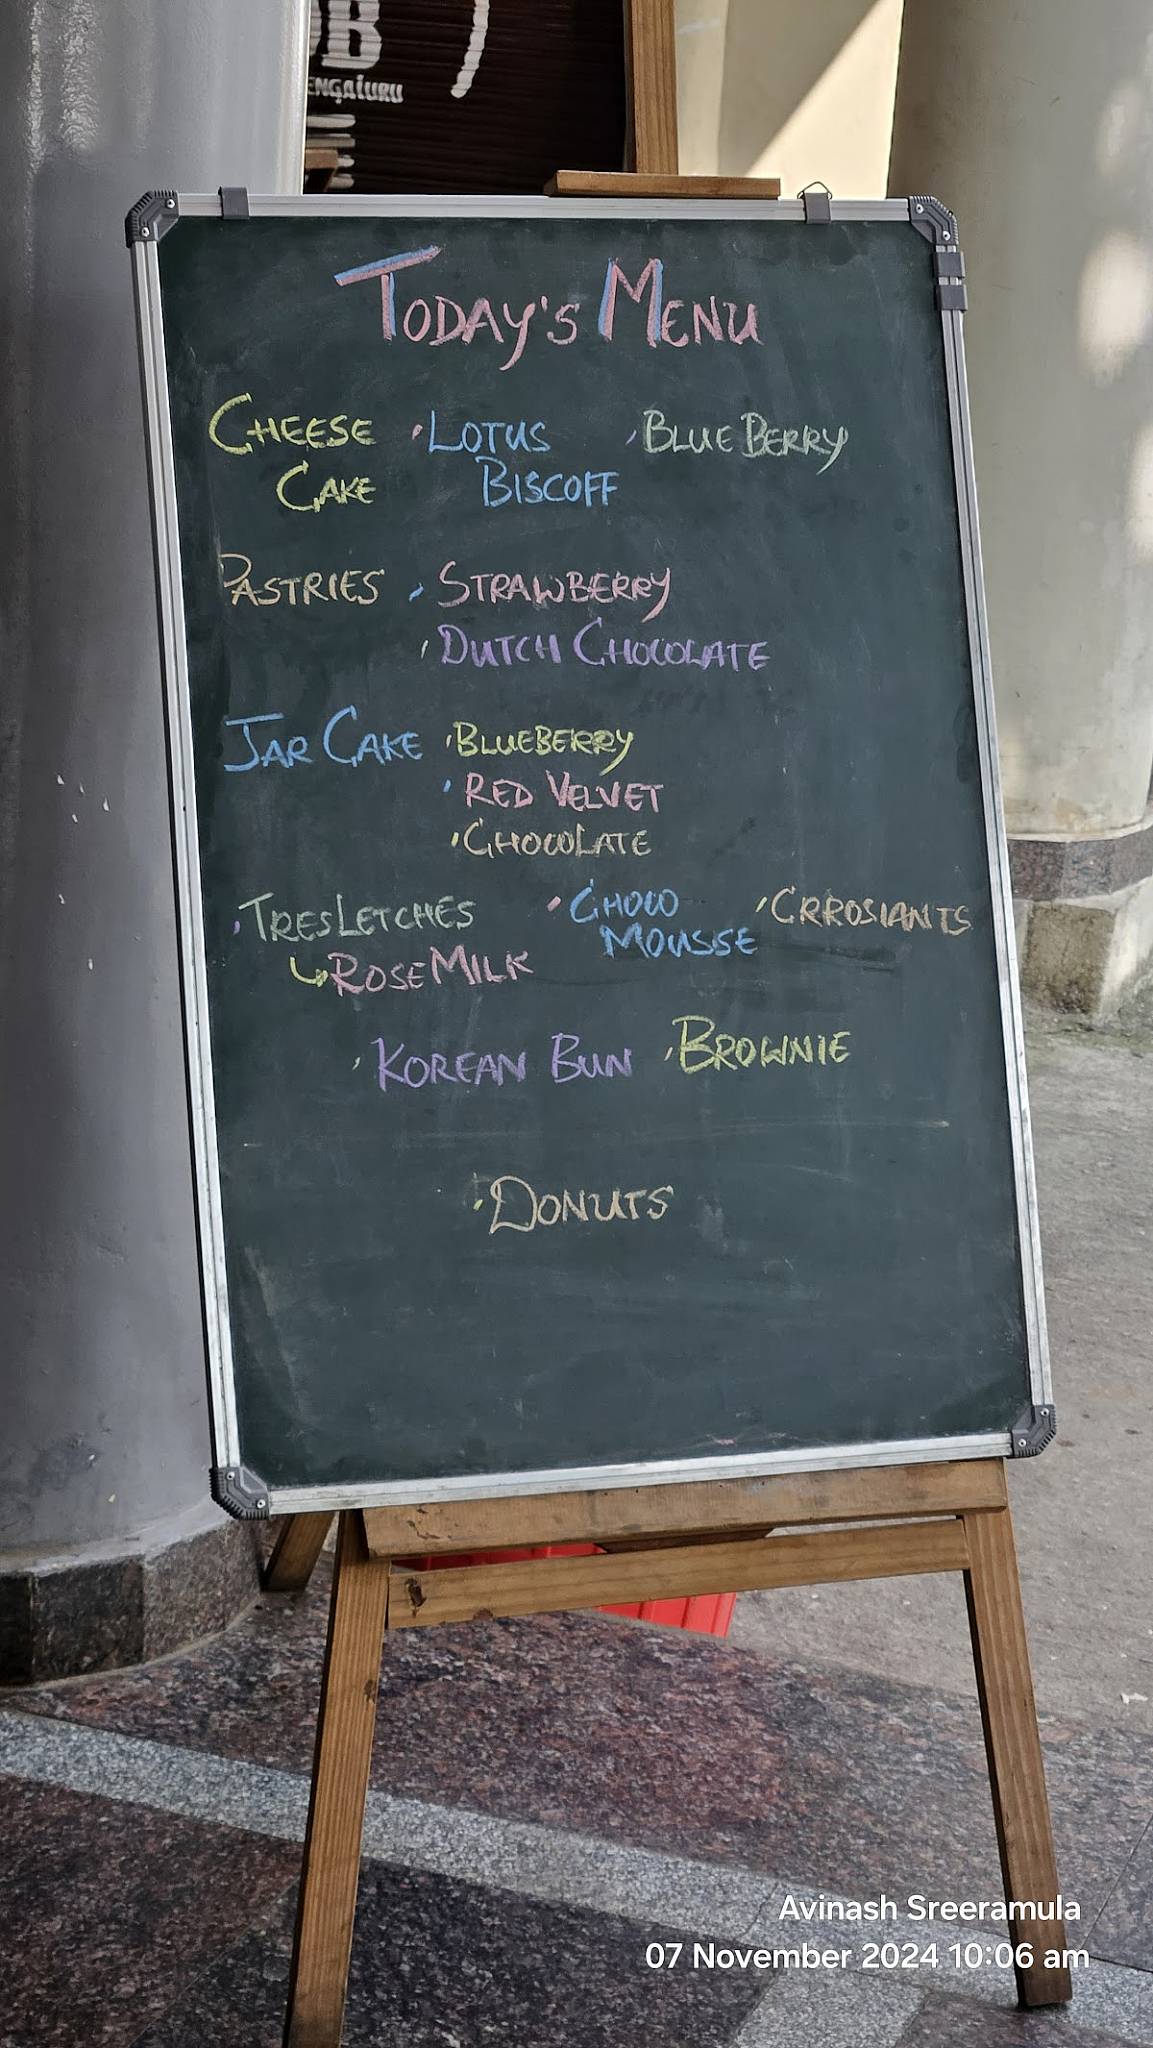 ENGALURU
TODAY'S MENU
CHEESE · LOTUS · BLUE BERRY
CAKE BISCOFF
PASTRIES · STRAWBERRY
· DUTCH CHOCOLATE
JAR CAKE · BLUEBERRY
· RED VELVET
· CHOCOLATE
· TRES LETCHES · CHOCO · CRROSIANTS
↳ ROSE MILK MOUSSE
· KOREAN BUN · BROWNIE
· DONUTS
Avinash Sreeramula
07 November 2024 10:06 am